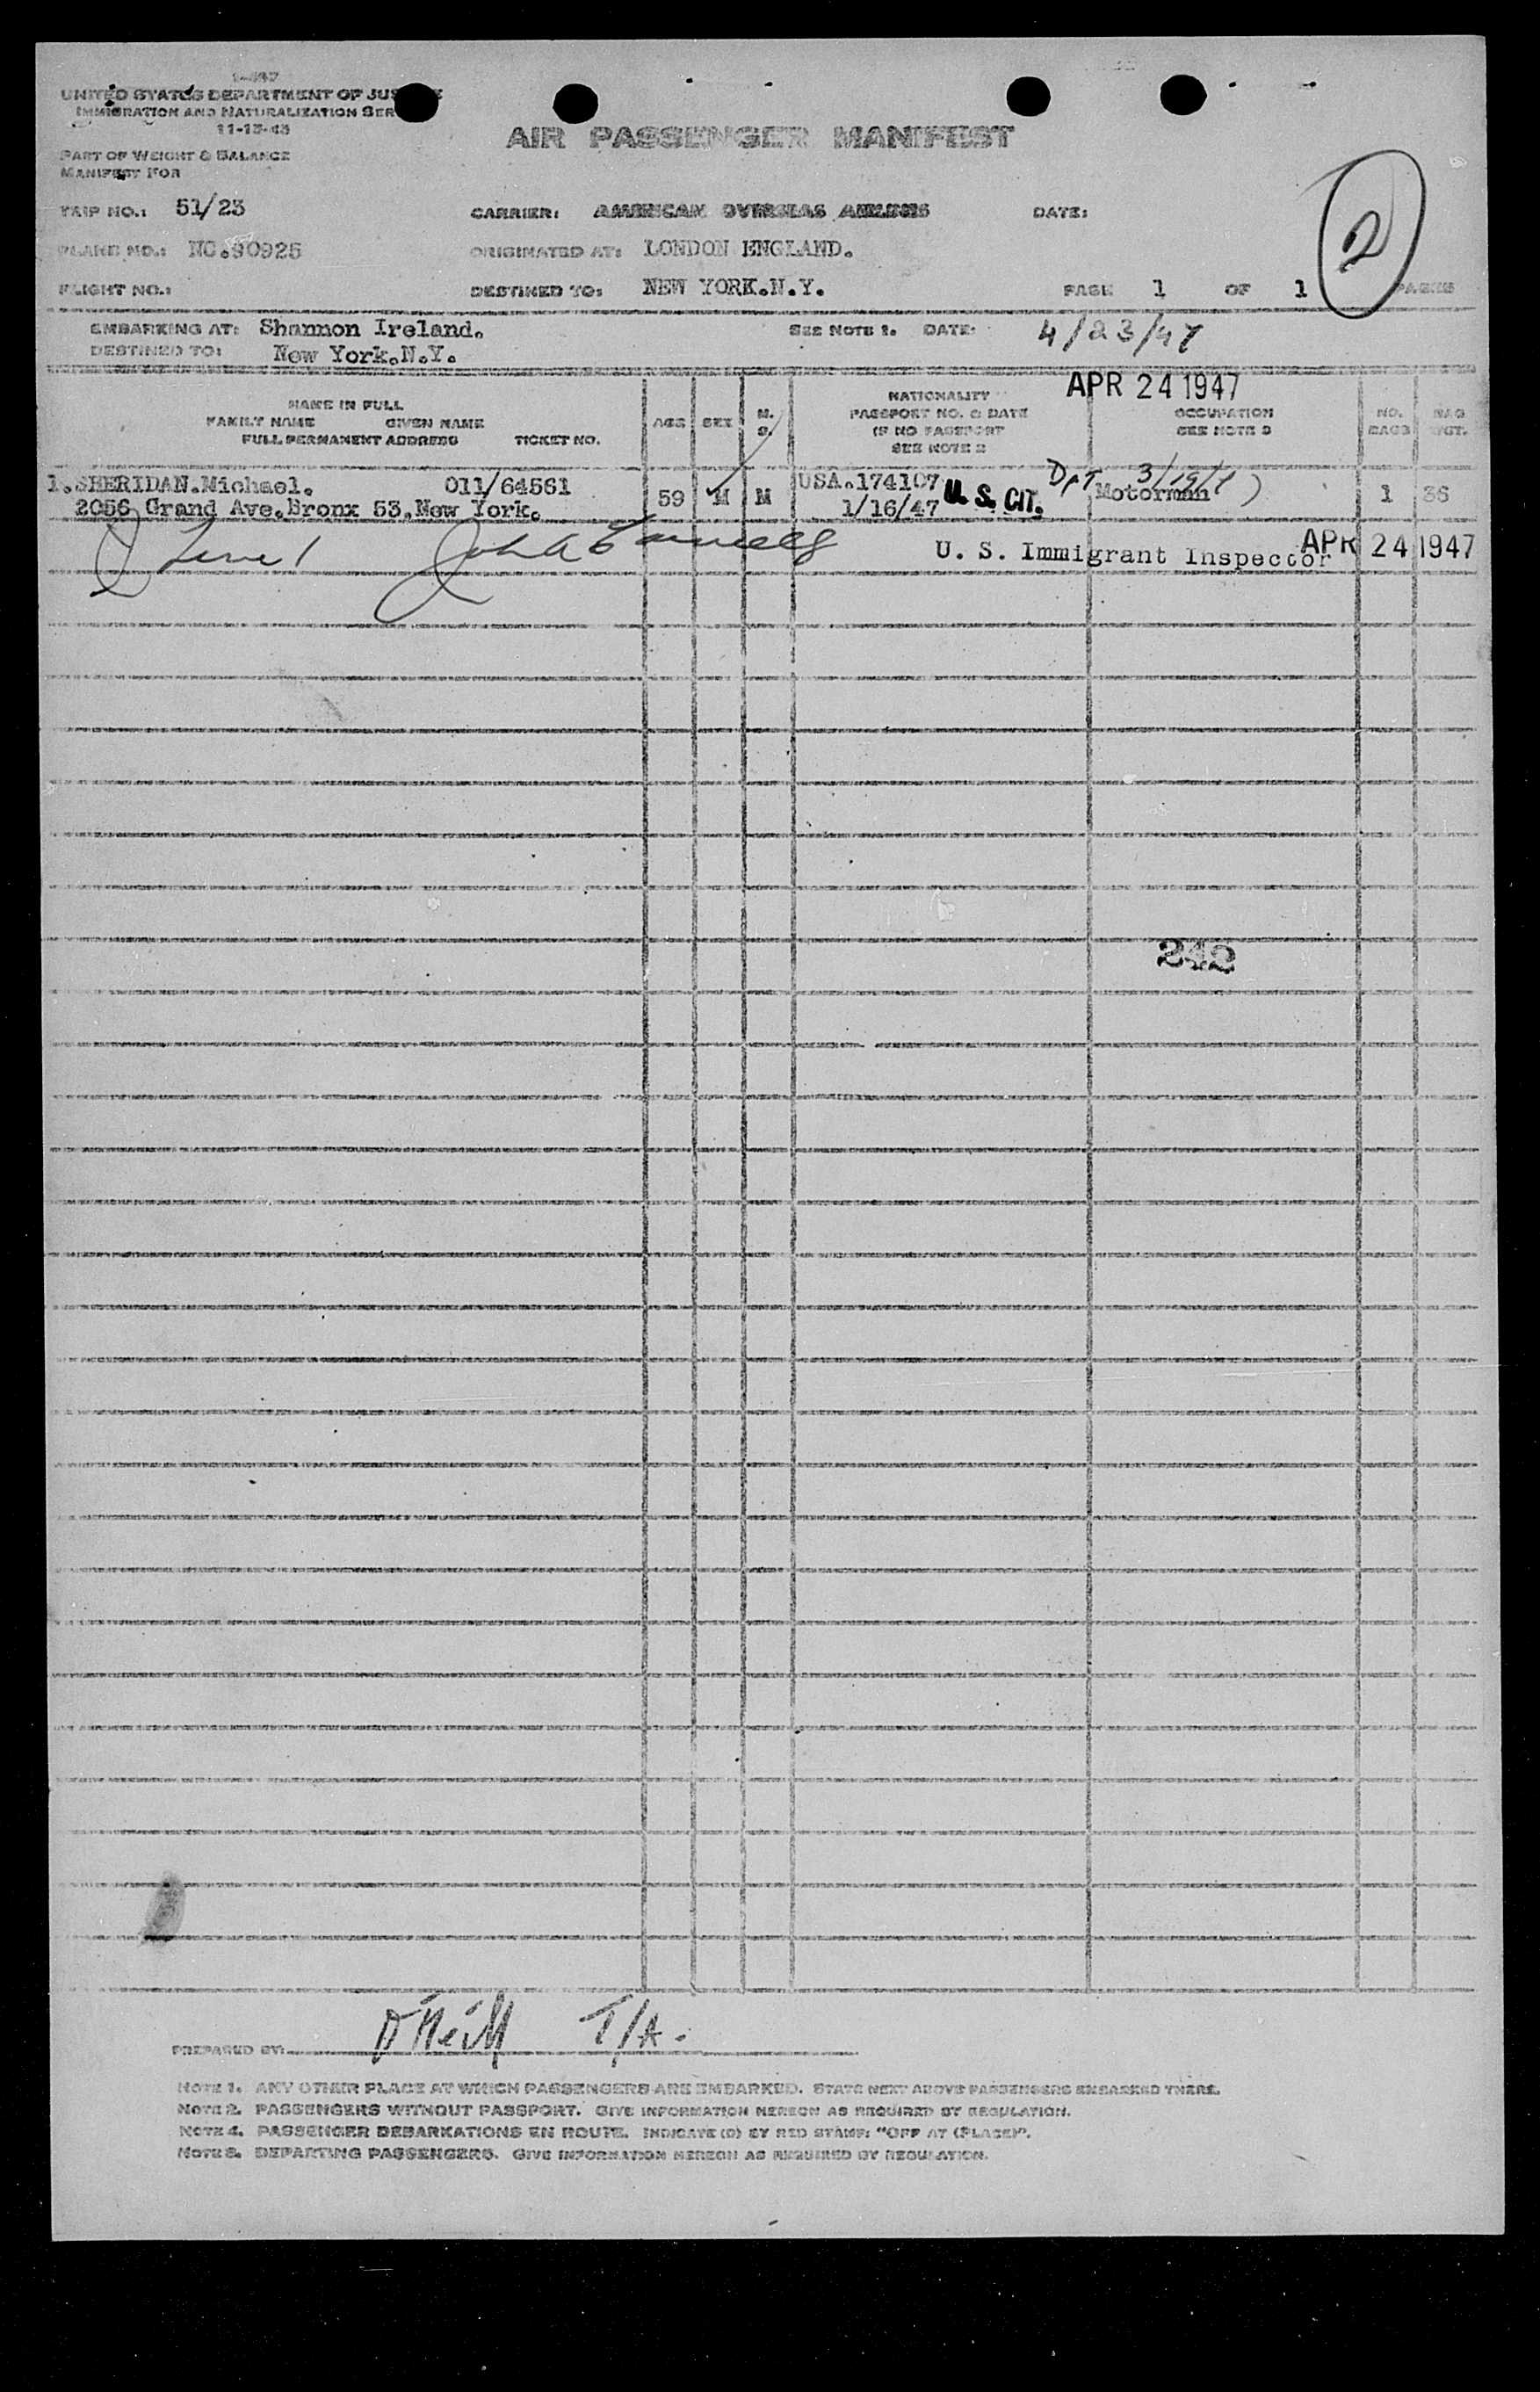 I-447
UNITED STATES DEPARTMENT OF JUSTICE
IMMIGRATION AND NATURALIZATION SER
11-15-45
AIR PASSENGER MANIFEST
PART OF WEIGHT & BALANCE
MANIFEST FOR
TRIP NO.: 51/23 CARRIER: AMERICAN OVERSEAS AIRLINES DATE:
2
PLANE NO.: NC.90925 ORIGINATED AT: LONDON ENGLAND.
FLIGHT NO.: DESTINED TO: NEW YORK.N.Y. PAGE 1 OF 1 PAGES
EMBARKING AT: Shannon Ireland. SEE NOTE 1. DATE: 4/23/47
DESTINED TO: New York.N.Y.
APR 24 1947
NAME IN FULL
FAMILY NAME GIVEN NAME
FULL PERMANENT ADDRESS TICKET NO.
AGE SEX M. S.
NATIONALITY
PASSPORT NO. & DATE
IF NO PASSPORT
SEE NOTE 2
OCCUPATION
SEE NOTE 3
NO. BAGS
BAG WGT.
1.SHERIDAN.Michael. 011/64561 59 M M USA.174107 U. S. CIT. Motorman 1 36
2056 Grand Ave.Bronx 53.New York. 1/16/47
U. S. Immigrant Inspector APR 24 1947
242
PREPARED BY: O'Neill T/A.
NOTE 1. ANY OTHER PLACE AT WHICH PASSENGERS ARE EMBARKED. STATE NEXT ABOVE PASSENGERS EMBARKED THERE.
NOTE 2. PASSENGERS WITHOUT PASSPORT. GIVE INFORMATION HEREON AS REQUIRED BY REGULATION.
NOTE 4. PASSENGER DEBARKATIONS EN ROUTE. INDICATE (D) BY RED STAMP: "OFF AT (PLACE)".
NOTE 3. DEPARTING PASSENGERS. GIVE INFORMATION HEREON AS REQUIRED BY REGULATION.